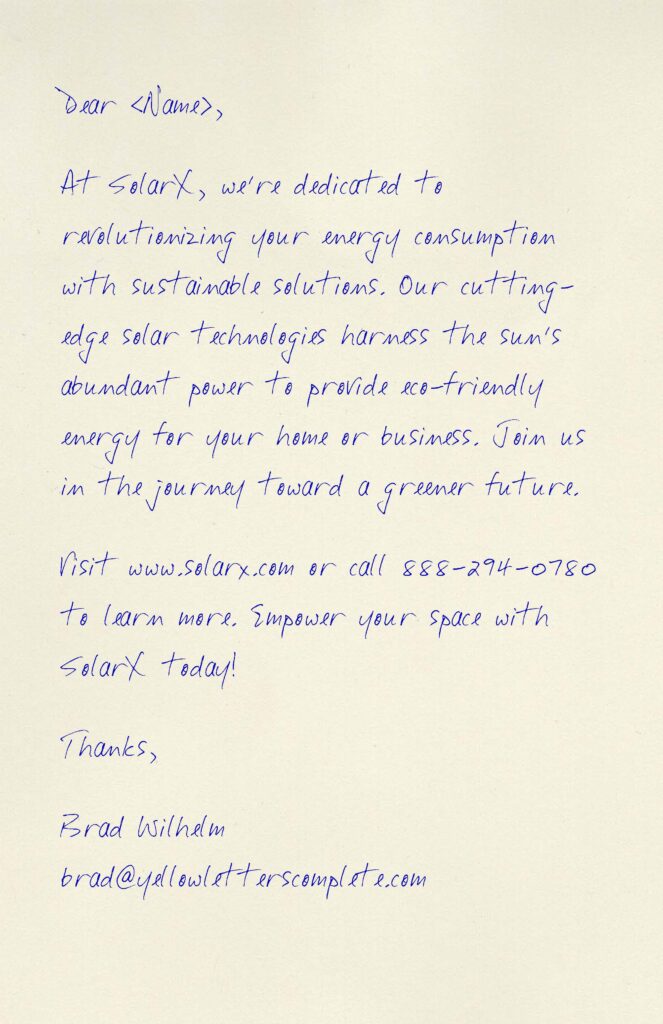 Dear <Name>,
At SolarX, we're dedicated to
revolutionizing your energy consumption
with sustainable solutions. Our cutting-
edge solar technologies harness the sun's
abundant power to provide eco-friendly
energy for your home or business. Join us
in the journey toward a greener future.
Visit www.solarx.com or call 888-294-0780
to learn more. Empower your space with
SolarX today!
Thanks,
Brad Wilhelm
brad@yellowletterscomplete.com